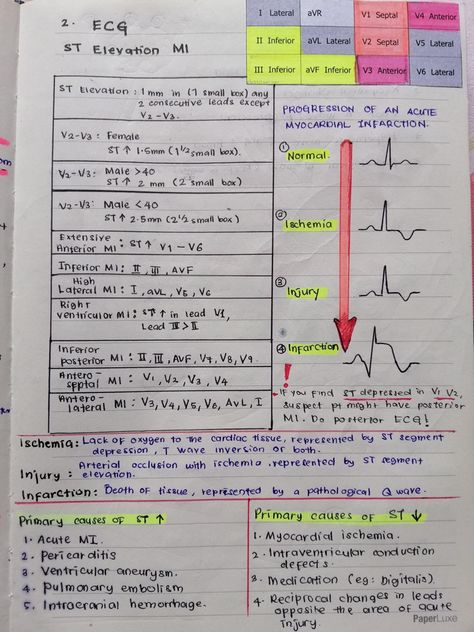 2. ECG
ST Elevation MI
I Lateral
aVR
V1 Septal
V4 Anterior
II Inferior
aVL Lateral
V2 Septal
V5 Lateral
III Inferior
aVF Inferior
V3 Anterior
V6 Lateral
ST Elevation : 1 mm in (1 small box) any
2 consecutive leads except
V2 - V3.
V2-V3 : Female
ST ↑ 1.5mm (1½ small box).
V2-V3 : Male >40
ST ↑ 2 mm (2 small box)
V2-V3 : Male <40
ST ↑ 2.5mm (2½ small box)
Extensive
Anterior MI : ST ↑ V1 - V6
Inferior MI : II, III, AVF
High
Lateral MI : I, aVL, V5, V6
Right
ventricular MI : ST ↑ in lead V1,
Lead III > II
Inferior
posterior MI : II, III, AVF, V7, V8, V9.
Antero-
septal MI : V1, V2, V3, V4
Antero-
lateral MI : V3, V4, V5, V6, AVL, I
PROGRESSION OF AN ACUTE
MYOCARDIAL INFARCTION.
① Normal.
② Ischemia
③ Injury
④ Infarction
! If you find ST depressed in V1 V2,
suspect pt might have posterior
MI. Do posterior ECG!
Ischemia: Lack of oxygen to the cardiac tissue, represented by ST segment
depression, T wave inversion or both.
Injury : Arterial occlusion with ischemia represented by ST segment
elevation.
Infarction: Death of tissue, represented by a pathological Q wave.
Primary causes of ST ↑
1. Acute MI.
2. Pericarditis
3. Ventricular aneurysm.
4. Pulmonary embolism
5. Intracranial hemorrhage.
Primary causes of ST ↓
1. Myocardial ischemia.
2. Intraventricular conduction
defects.
3. Medication (eg: Digitalis).
4. Reciprocal changes in leads
opposite the area of acute
injury.
PaperLuxe